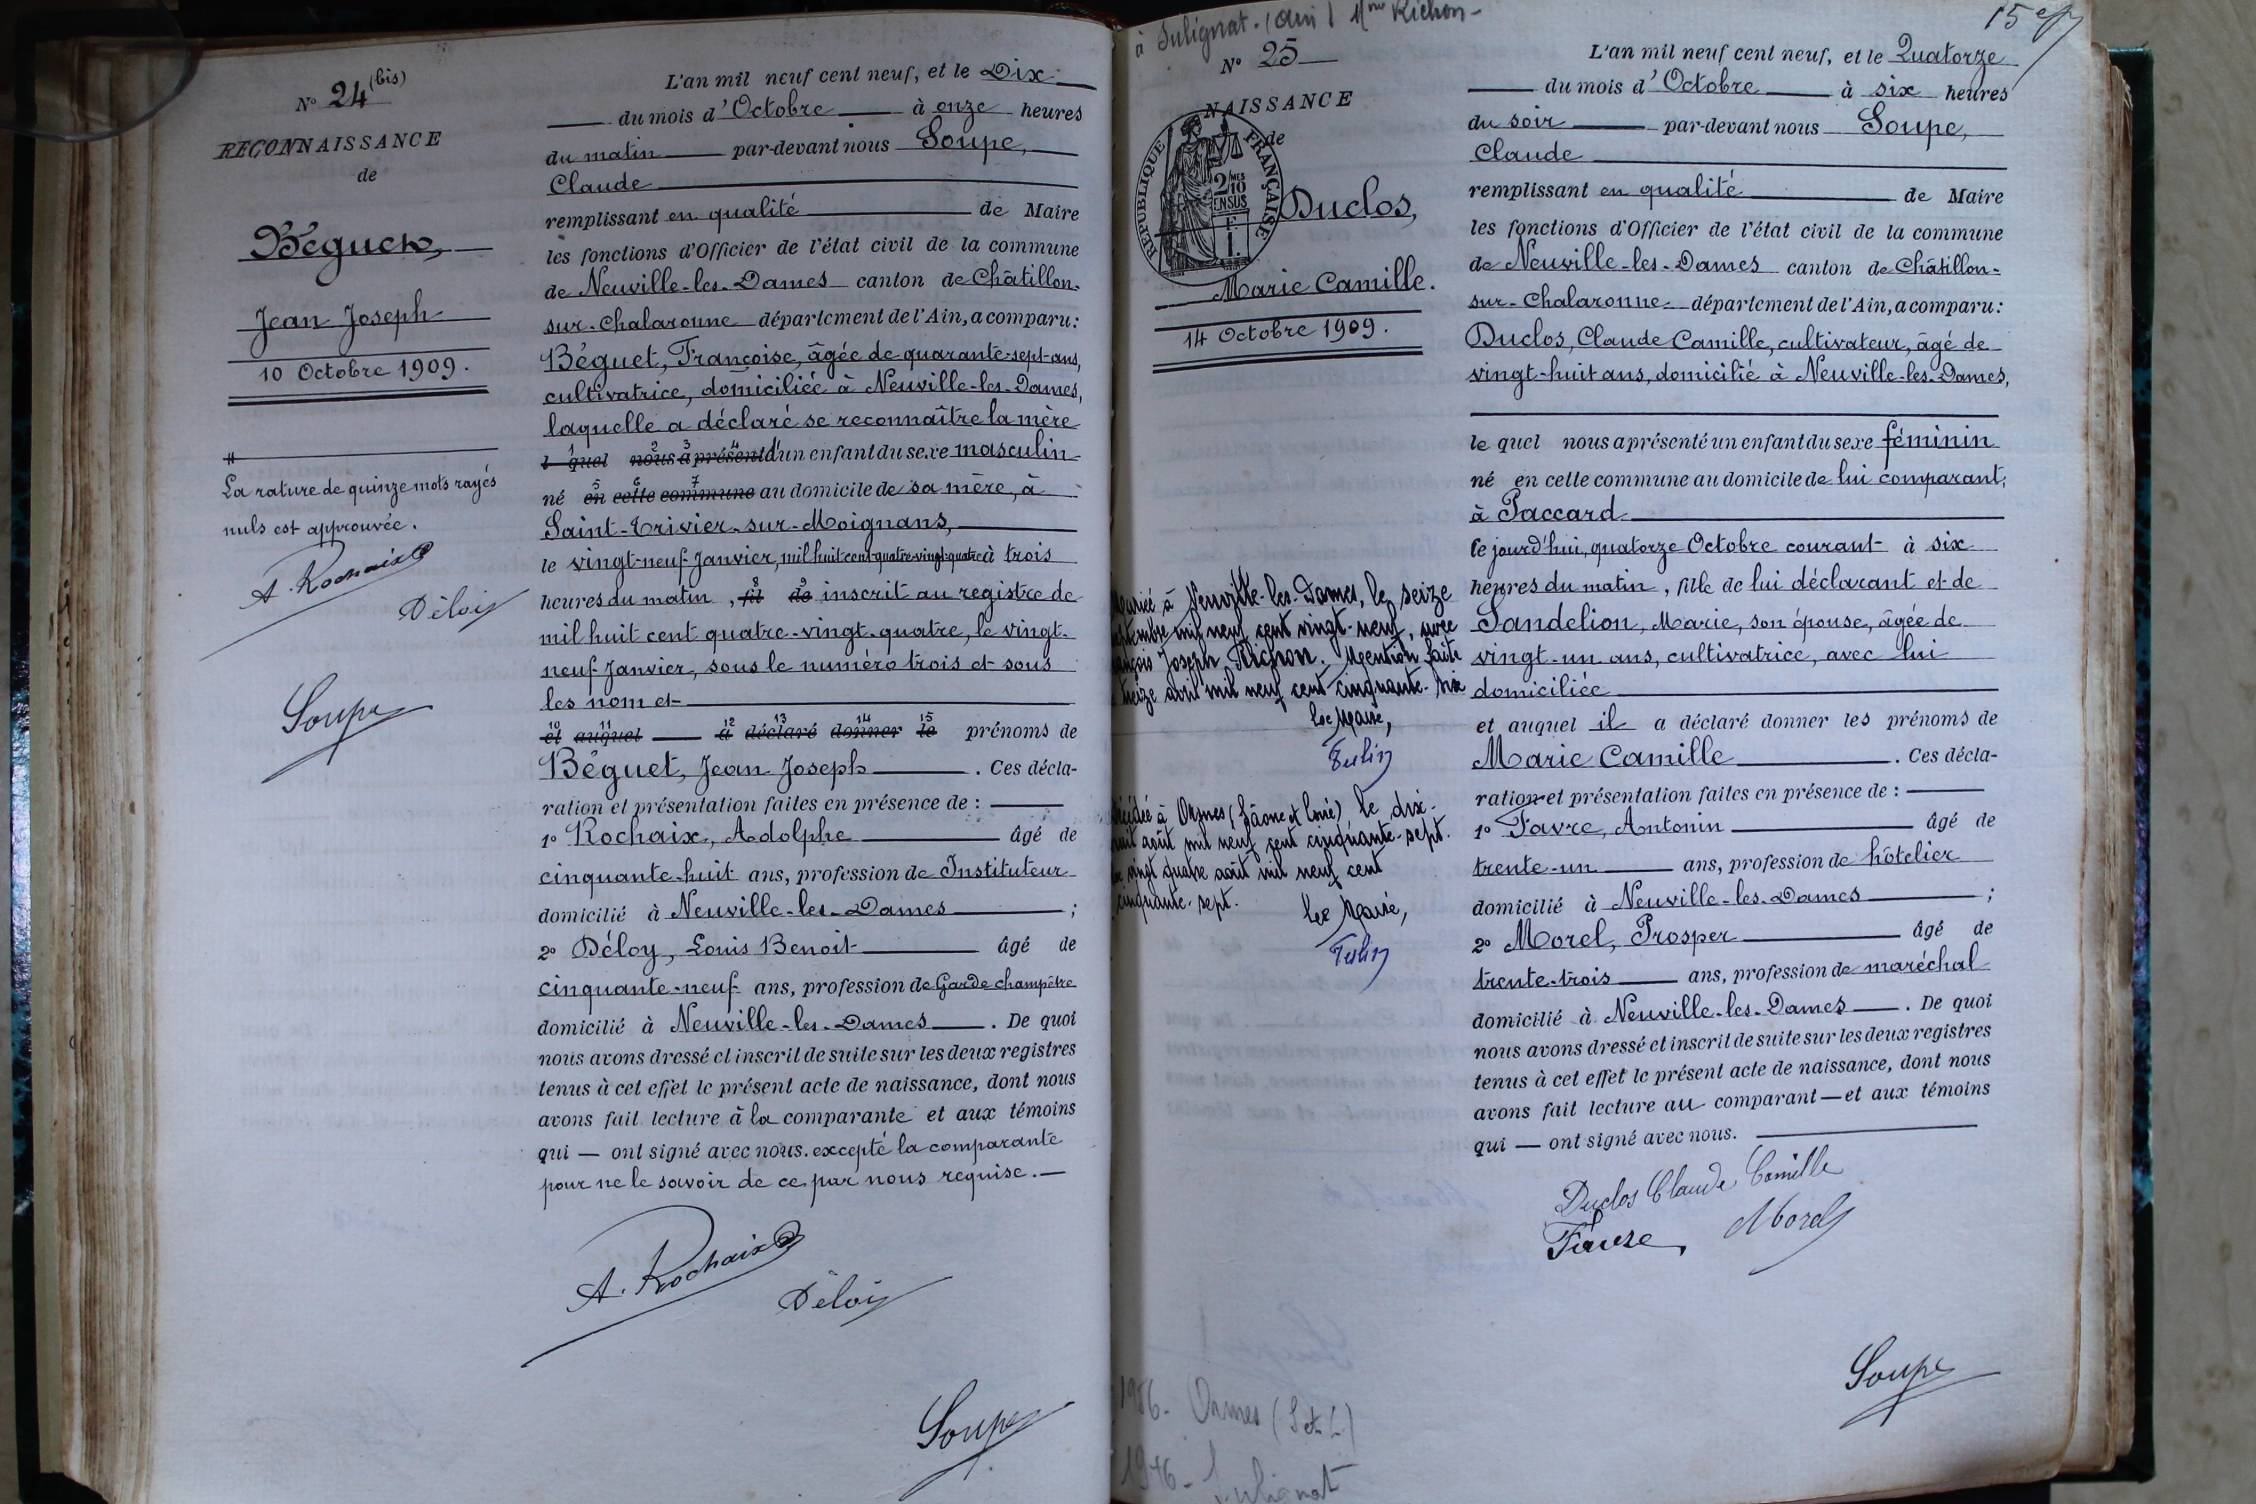 N° 24 (bis)
RECONNAISSANCE
de
Béguet,
Jean Joseph
10 Octobre 1909.
La rature de quinze mots rayés
nuls est approuvée.
A. Rochaix
Déloy
Soupe
L'an mil neuf cent neuf, et le Dix
du mois d'Octobre à onze heures
du matin par-devant nous Soupe,
Claude
remplissant en qualité de Maire
les fonctions d'Officier de l'état civil de la commune
de Neuville-les-Dames canton de Châtillon-
sur-Chalaronne département de l'Ain, a comparu:
Béguet, Françoise, âgée de quarante-sept-ans,
cultivatrice, domiciliée à Neuville-les-Dames,
laquelle a déclaré se reconnaître la mère
l quel nous a présenté d'un enfant du sexe masculin
né en cette commune au domicile de sa mère, à
Saint-Trivier-sur-Moignans,
le vingt-neuf Janvier, mil huit cent quatre-vingt-quatre à trois
heures du matin, fil de inscrit au registre de
mil huit cent quatre-vingt-quatre, le vingt-
neuf Janvier, sous le numéro trois et sous
les nom et
et auquel a déclaré donner le prénoms de
Béguet, Jean Joseph. Ces décla-
ration et présentation faites en présence de :
1° Rochaix, Adolphe âgé de
cinquante-huit ans, profession de Instituteur
domicilié à Neuville-les-Dames ;
2° Déloy, Louis Benoit âgé de
cinquante-neuf ans, profession de Garde champêtre
domicilié à Neuville-les-Dames. De quoi
nous avons dressé et inscrit de suite sur les deux registres
tenus à cet effet le présent acte de naissance, dont nous
avons fait lecture à la comparante et aux témoins
qui — ont signé avec nous. excepté la comparante
pour ne le savoir de ce par nous requise.
A. Rochaix
Déloy
Soupe
à Sulignat (Ain) Mme Richon
N° 25
NAISSANCE
de
RÉPUBLIQUE FRANÇAISE
2/10
EN SUS
Duclos,
Marie Camille.
14 Octobre 1909.
à Neuville-les-Dames, le seize
mil neuf cent vingt-neuf, avec
Joseph Richon. Mention faite
treize avril mil neuf cent cinquante-six
Le Maire,
à Ormes (Saône et Loire) le dix-
août mil neuf cent cinquante-sept.
vingt quatre août mil neuf cent
cinquante-sept.
Le Maire,
Ormes (S et L)
Sulignat
15
L'an mil neuf cent neuf, et le Quatorze
du mois d'Octobre à six heures
du soir par-devant nous Soupe,
Claude
remplissant en qualité de Maire
les fonctions d'Officier de l'état civil de la commune
de Neuville-les-Dames canton de Châtillon-
sur-Chalaronne département de l'Ain, a comparu:
Duclos, Claude Camille, cultivateur, âgé de
vingt-huit ans, domicilié à Neuville-les-Dames,
le quel nous a présenté un enfant du sexe féminin
né en cette commune au domicile de lui comparant,
à Paccard
le jourd'hui, quatorze Octobre courant à six
heures du matin, fille de lui déclarant et de
Sandelion, Marie, son épouse, âgée de
vingt-un ans, cultivatrice, avec lui
domiciliée
et auquel il a déclaré donner les prénoms de
Marie Camille. Ces décla-
ration et présentation faites en présence de :
1° Favre, Antonin âgé de
trente-un ans, profession de hôtelier
domicilié à Neuville-les-Dames ;
2° Morel, Prosper âgé de
trente-trois ans, profession de maréchal
domicilié à Neuville-les-Dames. De quoi
nous avons dressé et inscrit de suite sur les deux registres
tenus à cet effet le présent acte de naissance, dont nous
avons fait lecture au comparant — et aux témoins
qui — ont signé avec nous.
Duclos Claude Camille
Favre Morel
Soupe